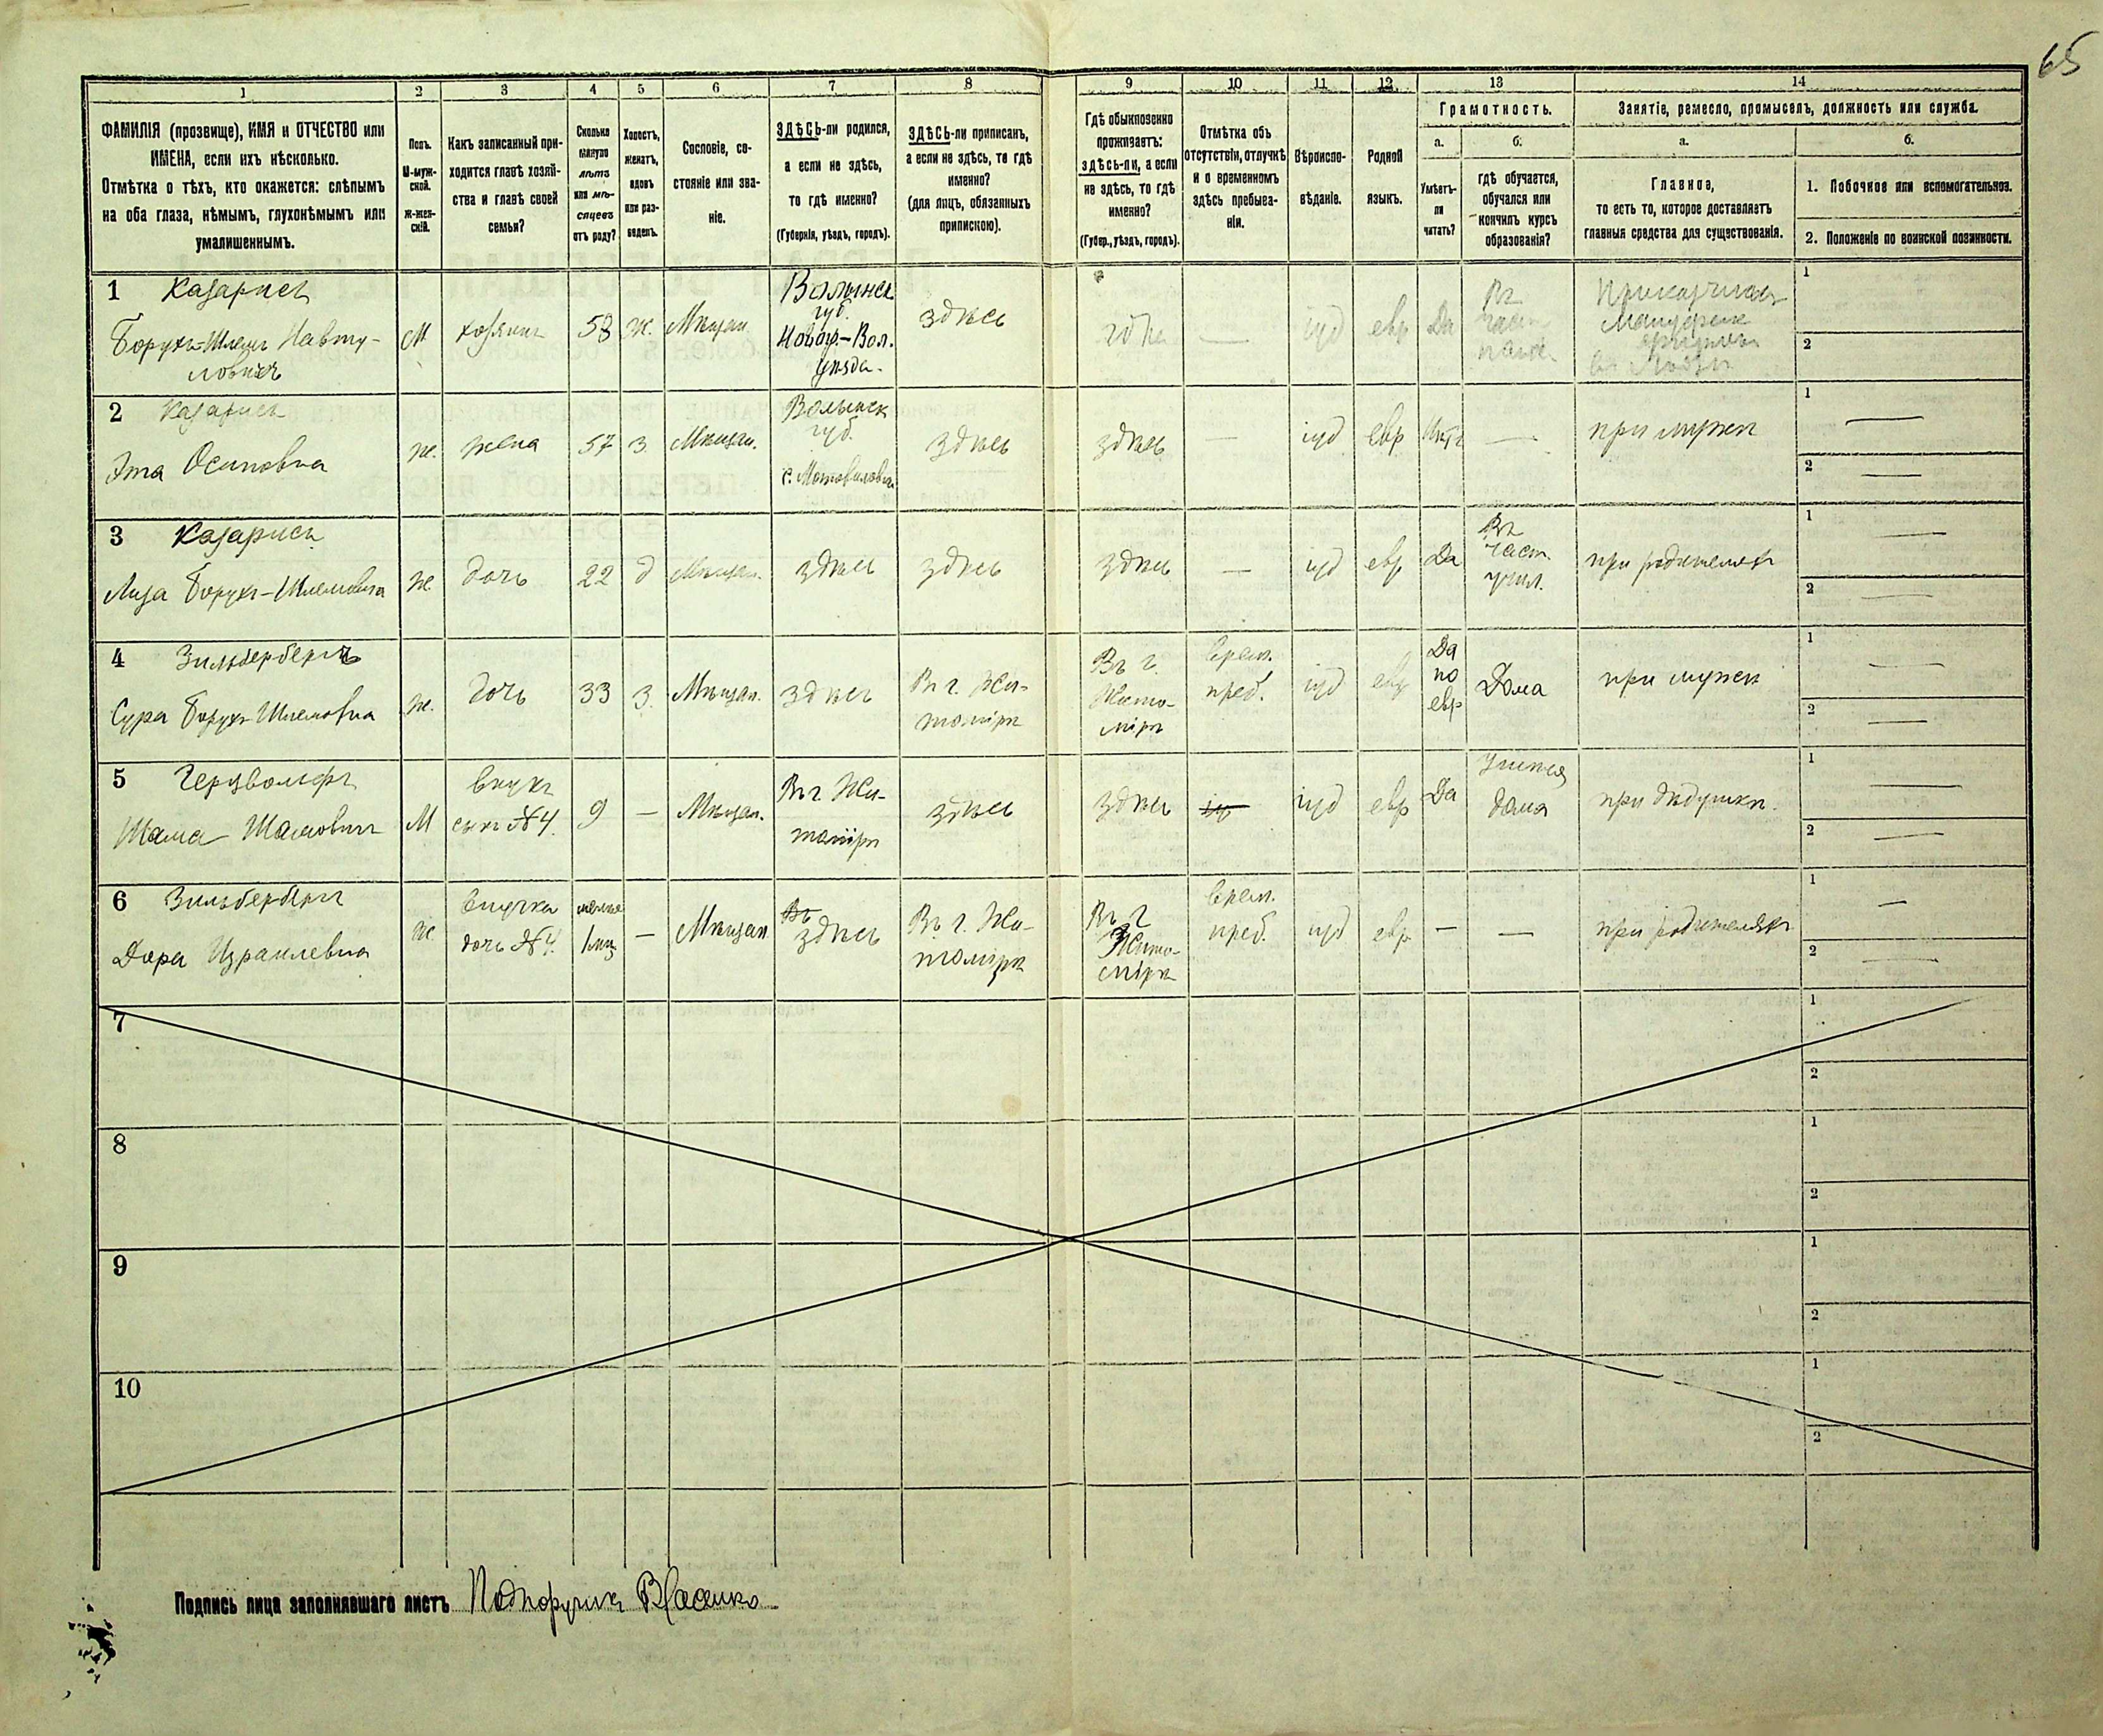 65
1 2 3 4 5 6 7 8 9 10 11 12 13 14
ФАМИЛІЯ (прозвище), ИМЯ и ОТЧЕСТВО или
ИМЕНА, если ихъ нѣсколько.
Отмѣтка о тѣхъ, кто окажется: слѣпымъ
на оба глаза, нѣмымъ, глухонѣмымъ или
умалишеннымъ.
Полъ.
М-муж-
ской.
Ж-жен-
скій.
Какъ записанный при-
ходится главѣ хозяй-
ства и главѣ своей
семьи?
Сколько
минуло
лѣтъ
или мѣ-
сяцевъ
отъ роду?
Холостъ,
женатъ,
вдовъ
или раз-
веденъ.
Сословіе, со-
стояніе или зва-
ніе.
ЗДѢСЬ-ли родился,
а если не здѣсь,
то гдѣ именно?
(Губернія, уѣздъ, городъ).
ЗДѢСЬ-ли приписанъ,
а если не здѣсь, то гдѣ
именно?
(для лицъ, обязанныхъ
припискою).
Гдѣ обыкновенно
проживаетъ:
здѣсь-ли, а если
не здѣсь, то гдѣ
именно?
(Губер., уѣздъ, городъ).
Отмѣтка объ
отсутствіи, отлучкѣ
и о временномъ
здѣсь пребыва-
ніи.
Вѣроиспо-
вѣданіе.
Родной
языкъ.
Грамотность.
а.
Умѣетъ-
ли
читать?
б.
гдѣ обучается,
обучался или
кончилъ курсъ
образованія?
Занятіе, ремесло, промыселъ, должность или служба.
а.
Главное,
то есть то, которое доставляетъ
главныя средства для существованія.
б.
1. Побочное или вспомогательное.
2. Положеніе по воинской повинности.
1 Казарисъ
Борухъ-Шлемъ Навту-
ловичъ
М
хозяинъ
58
ж.
Мѣщан.
Волынск.
губ.
Новогр.-Вол.
уѣзда.
здѣсь
—
іуд
евр
Да
Въ
1
2
2 Казарисъ
Эта Осиповна
ж.
жена
57
з.
Мѣщан.
Волынск
губ.
здѣсь
здѣсь
—
іуд
евр
Нѣтъ
—
при мужѣ
1 —
2 —
3 Казарисъ
Лиза Борухъ-Шлемовна
ж.
дочь
22
д
Мѣщан.
здѣсь
здѣсь
здѣсь
—
іуд
евр
Да
Въ
част.
учил.
при родителяхъ
1 —
2 —
4 Зильбербергъ
Сура Борухъ-Шлемовна
ж.
дочь
33
з.
Мѣщан.
здѣсь
Въ г. Жи-
томірѣ
Въ г.
Жито-
мірѣ
Врем.
преб.
іуд
евр
Да
по
евр
Дома
при мужѣ
1 —
2 —
5 Герцвольфъ
Шама Шамовичъ
М
внукъ
сынъ №4.
9
—
Мѣщан.
Въ г. Жи-
томірѣ
здѣсь
здѣсь
іуд
евр
Да
Учится
дома
при дѣдушкѣ.
1 —
2 —
6 Зильбербергъ
Дора Израилевна
ж
внучка
дочь №4.
менѣе
1 мѣс
—
Мѣщан
Въ
здѣсь
Въ г. Жи-
томірѣ
Въ г
Жито-
мірѣ
Врем.
преб.
іуд
евр
—
—
при родителяхъ
1 —
2 —
7
1
2
8
1
2
9
1
2
10
1
2
Подпись лица заполнявшаго листъ Подпоручикъ Власенко